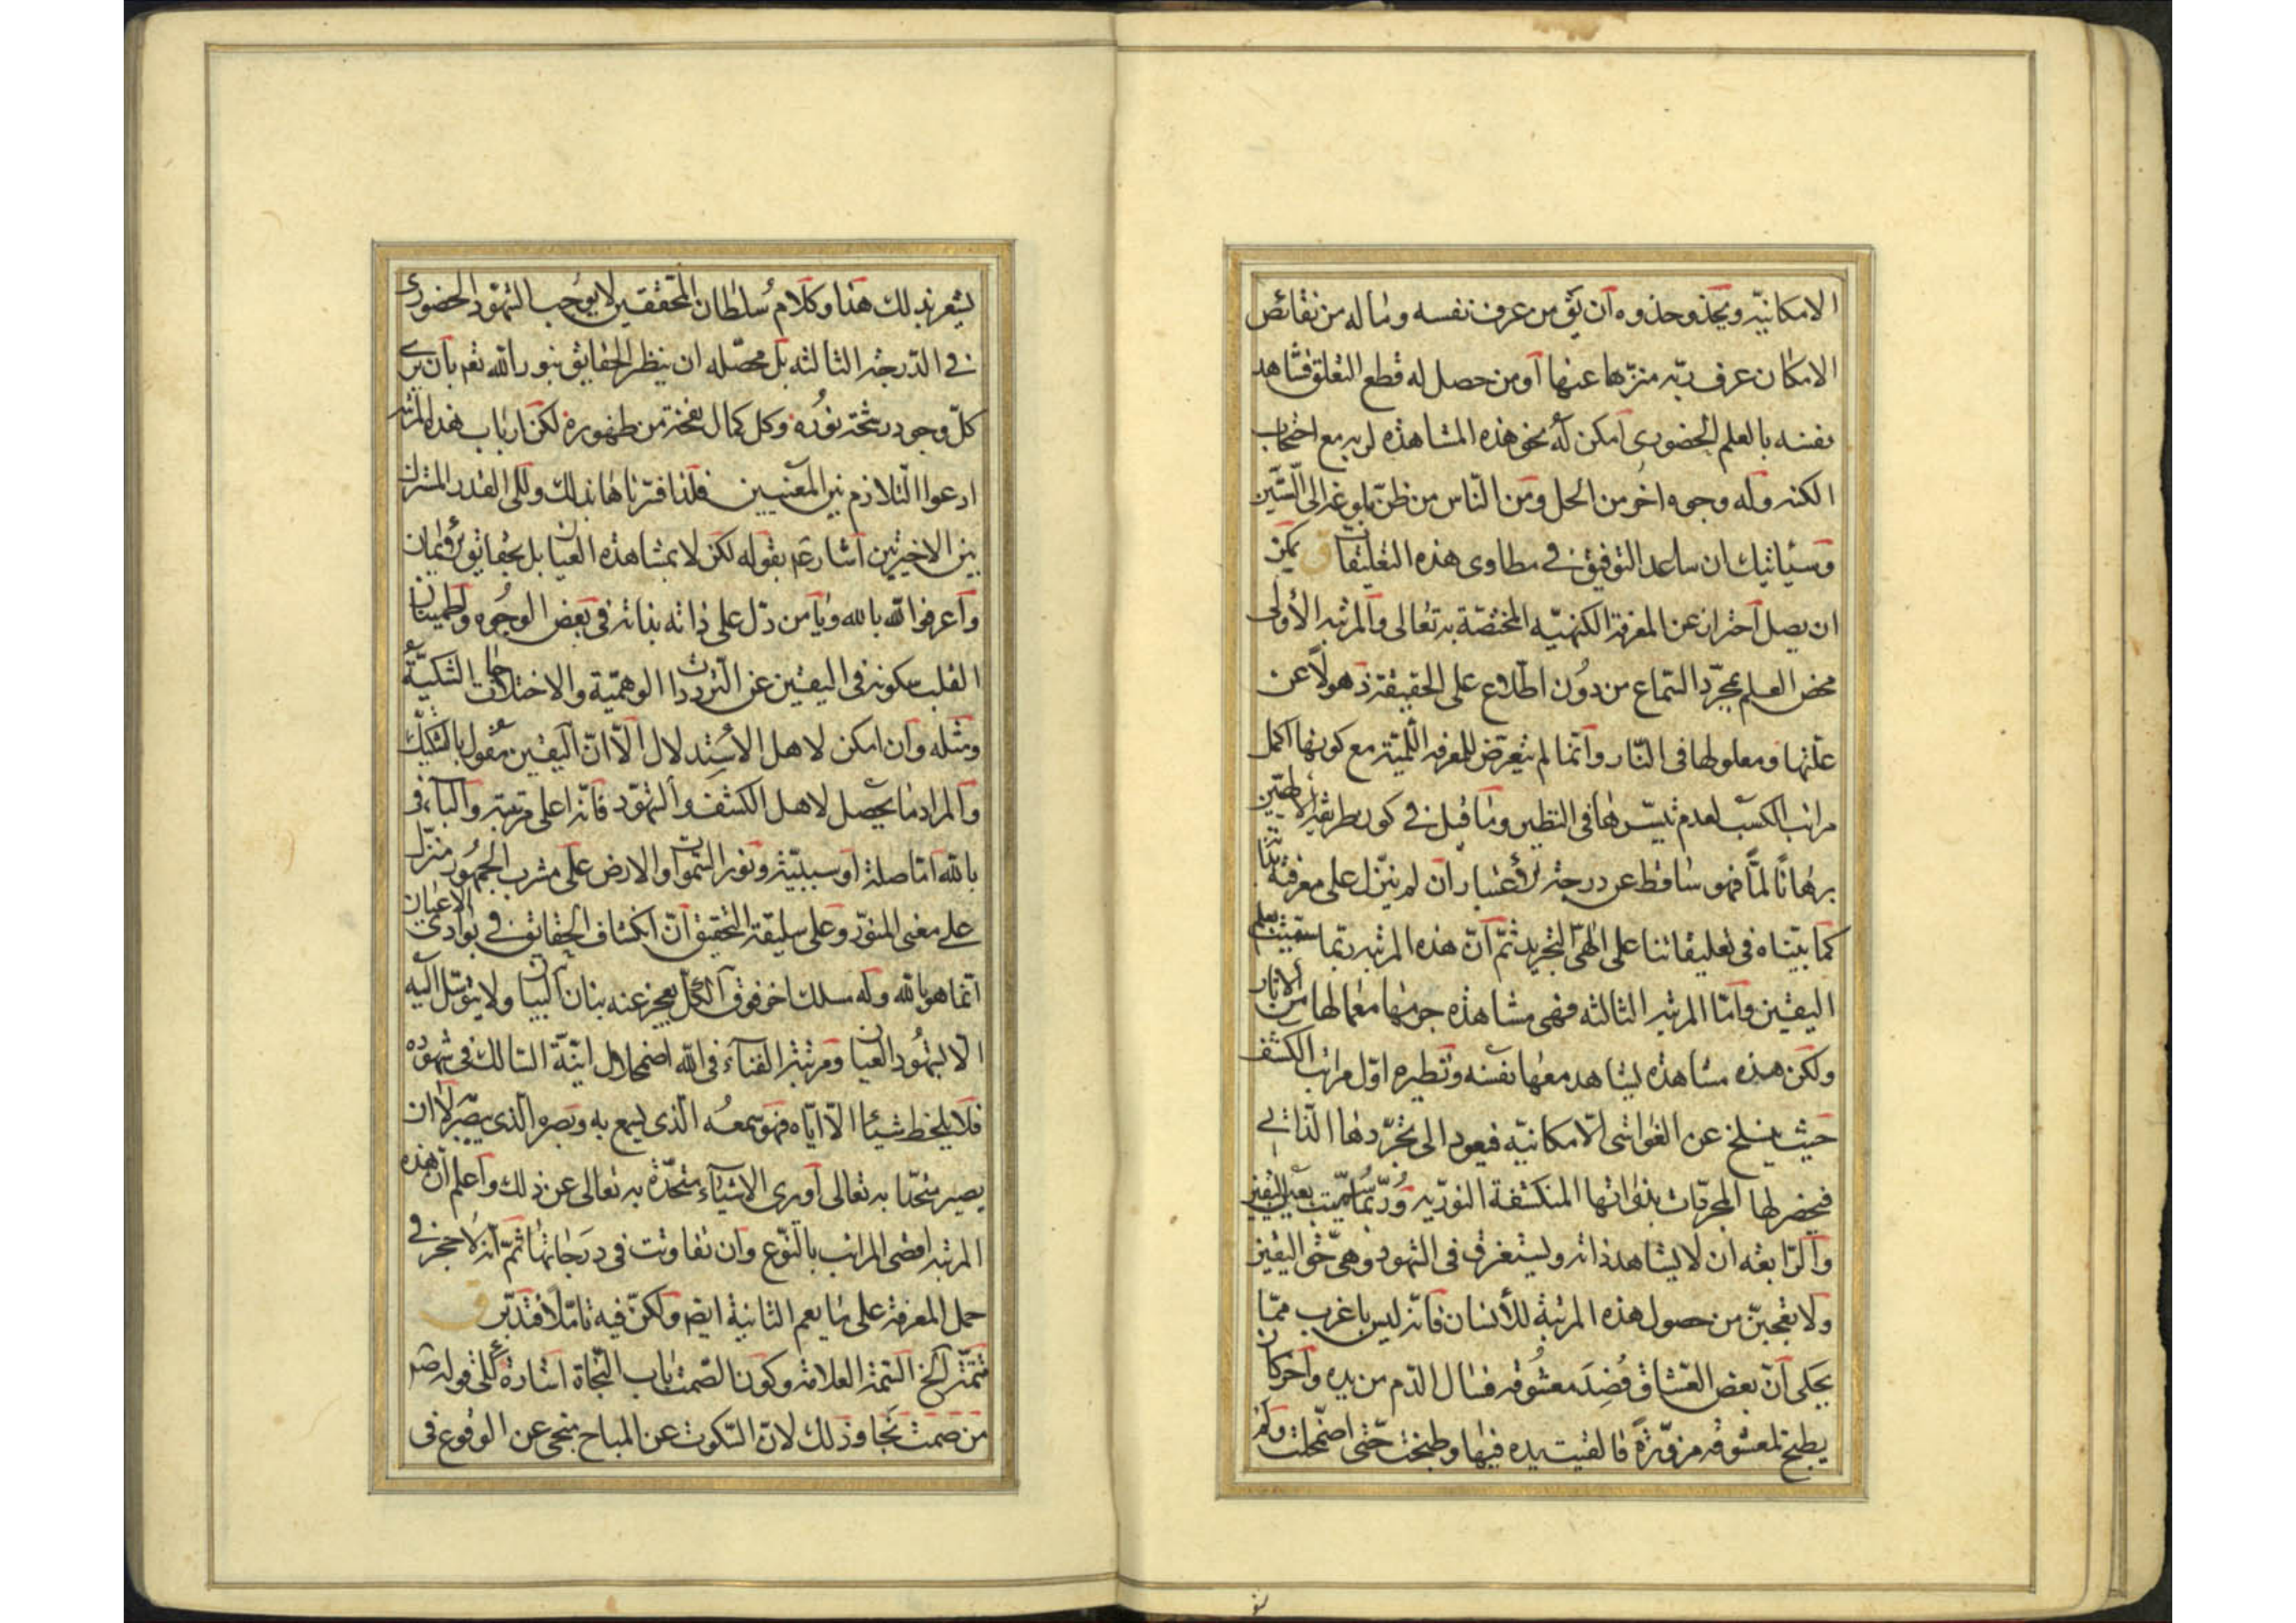 الامكانيّه ويحذو حذوه ان يق من عرف نفسه وماله من نقائص
الامكان عرف ربّه منزّها عنها او من حصل له قطع التعلق فشاهد
نفسه بالعلم الحضورى امكن له نحو هذه المشاهده لربه مع احتجاب
الكنه وله وجوه اخر من الحل ومن النّاس من ظنّ بلوغه الى الستّين
وسيأتيك ان ساعد التوفيق فى مطاوى هذه التعليقات ق يمكن
ان يصل احتران عن المعرفة الكنهيّه المختصّة به تعالى والمرتبه الأولى
محض العلم بمجرّد السّماع من دون اطّلاع على الحقيقة ذهولاً عن
علّتها ومعلولها فى النّار وانّما لم يتعرّض للمعرفه اللّميّة مع كونها اكمل
مراتب الكسب لعدم تيسّرها فى النظير وما قيل فى كون طريقة الالهيّين
برهانًا لمًّا فهو ساقط عن درجة الأعتبار ان لم ينزّل على معرفة
كما بيّناه فى تعليقاتنا على الهىّ التجريد ثمّ انّ هذه المرتبه ربّما سمّيت بعلم
اليقين وامّا المرتبه الثالثه فهى مشاهدة جرمها معمالها من الاثار
ولكن هذه مشاهده يشاهد معها نفسه ونظيره اوّل مراتب الكشف
حيث ينسلخ عن الغواشى الامكانيّه فيعود الى تجرّدها الذّاتى
فيحضر لها المجرّدات بذواتها المنكشفة النوريّه وربّما سمّيت بعين اليقين
والرّابعه ان لا يشاهد ذاته ويستغرق فى الشهود وهى حقّ اليقين
ولا تعجبنّ من حصول هذه المرتبة للأنسان فانّه ليس باغرب ممّا
يحكى انّ بعض العشاق فُصِدَ معشوقه فسال الدّم من يده واخر كان
يطبخ لمعشوقه مزوّرة فالقيت يده فيها وطبخت حتّى اضمحلت ولم
يشعر بذلك هذا وكلام سلطان المحققين لا يوجب الشهود الحضورى
فى الدّرجة الثالثه بل محصّله ان ينظر الحقايق بنور الله تعم بان يرى
كلّ وجود رشحة نوره وكل كمال نفحة من ظهوره لكن ارباب هذه المرتبه
ادعوا التّلازم بين المعنيين فلذا فسّرناها بذلك والى القدر المشترك
بين الاخيرتين اشار عم بقوله لكن لا بمشاهده العيان بل بحقايق الأيمان
واعرفوا الله بالله ويا من دلّ على ذاته بذاته فى بعض الوجوه واطمينان
القلب سكونه فى اليقين عن التردّدات الوهميّة والاختلاجات الشكيّة
ومثله وان امكن لاهل الأستدلال الّا انّ اليقين مقول بالتشكيك
والمراد ما يحصل لاهل الكشف والشهود فانّه اعلى مرتبة والباء فى
بالله امّا صلة او سببيّة ونور السّموات والارض على مشرب الجمهور منزّل
على معنى المنوّر وعلى سليقة التحقيق انّ انكشاف الحقايق فى بوادى الاعيان
انّما هو بالله وله مسلك اخر فوق الكلّ يعجز عنه بنان البيان ولا يتوسّل اليه
الّا بشهود العيان ومرتبة الفناء فى الله اضمحلال انيّة السّالك فى شهوده
فلا يلحظ شيئا الّا ايّاه فهو سمعه الّذى يسمع به وبصره الّذى يبصر لا ان
يصير متّحدا به تعالى او يرى الاشياء متّحدة به تعالى عن ذلك واعلم انّ هذه
المرتبه اقصى المراتب بالنّوع وان تفاوتت فى درجاتها ثمّ انّه لا حجر فى
حمل المعرفة على ما يعم الثانية ايضا ولكنّ فيه تامّلا فتدبّر ق
تتمّة الخ التتمة العلامة وكون الصّمت باب النّجاة اشارة الى قوله صم
من صمت نجا وذلك لانّ السّكوت عن المباح منجى عن الوقوع فى